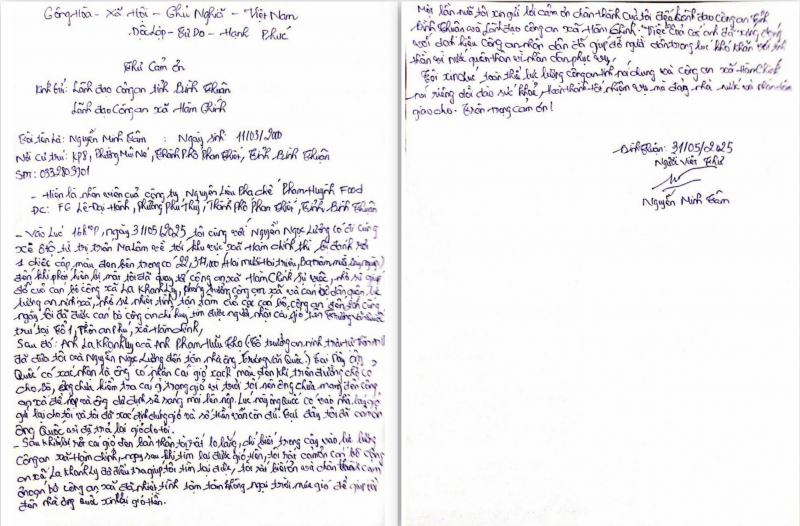 Cộng Hòa - Xã Hội - Chủ Nghĩa - Việt Nam
Độc Lập - Tự Do - Hạnh Phúc
Thư Cảm ơn
Kính gửi: Lãnh đạo công an tỉnh Bình Thuận
Lãnh đạo công an xã Hàm Chính
Tôi tên là: Nguyễn Minh Tâm : Ngày sinh 11/03/2000
Nơi cư trú: KP8, Phường Mũi Né, Thành Phố Phan Thiết, Tỉnh Bình Thuận
SĐT:
- Hiện là nhân viên của công ty Nguyên Liệu Pha chế Phạm Huỳnh Food
ĐC: FG Lê Đại Hành, Phường Phú Thuỷ, Thành Phố Phan Thiết, Tỉnh Bình Thuận
- Vào Lúc 16h, ngày 31/05/2025 tôi cùng với Nguyễn Ngọc Lương có đi cùng
xe ôtô từ thị trấn Ma Lâm về tới khu vực xã Hàm Chính thì bị đánh rơi
1 chiếc cặp màu đen bên trong có (Hai mươi hai triệu,
đến khi phát hiện bị mất tôi đã quay lại công an xã Hàm Chính sự việc, nhờ sự giúp
đỡ của cán bộ công xã La Khánh Ly, phòng trưởng công an xã và cán bộ
lượng an ninh xã, nhờ sự nhiệt tình tận tâm của các cán bộ công an đến
ngày tôi đã được cán bộ công an chỉ huy tìm được người nhặt cái giỏ tên Trương Văn Quốc
trú tại Tổ 1, Thôn An Phú, xã Hàm Chính,
Sau đó: Anh La Khánh Ly và Anh Phạm Hữu Thọ (Tổ trưởng an ninh trật tự
đã đưa tôi và Nguyễn Ngọc Lương đến tận nhà ông Trương Văn Quốc) Tại đây ông
Quốc có xác nhận là ông có nhặt cái giỏ xách màu đen khi trên đường chở cỏ
cho bò, ông chưa kiểm tra cái gì trong giỏ vì trời tối nên ông chưa mang đến công
an xã để nộp và ông dự định sẽ sáng mai lên nộp. Lúc này ông Quốc có vào nhà lấy giỏ
giả lại cho tôi và tôi đã xác định đúng giỏ và số tiền vẫn còn đủ. Tại đây tôi đã cảm ơn
ông Quốc vì đã trả lại giỏ cho tôi.
- Sau khi bị rớt cái giỏ đen bản thân tôi rất lo lắng, chỉ biết trông cậy vào lực lượng
công an xã Hàm Chính, ngay sau khi tìm lại được giỏ tiền, tôi rất cảm ơn cán bộ công
an xã La Khánh Ly đã điều tra giúp tôi tìm lại được, tôi rất biết ơn và chân thành cảm
ơn cán bộ công an xã đã nhiệt tình tận tâm không ngại trời mưa gió để giúp tôi
đến nhà ông Quốc xin lại giỏ tiền.
Một lần nữa tôi xin gửi lời cảm ơn chân thành của tôi đến lãnh đạo công an Tỉnh
Bình Thuận và Lãnh đạo công an xã Hàm Chính. Việc làm của các anh đã xứng đáng
với danh hiệu công an nhân dân đã giúp đỡ người dân trong lúc khó khăn với tinh
thần vì nước quên thân vì nhân dân phục vụ,
Tôi xin chúc toàn thể lực lượng công an tỉnh nói chung và công an xã Hàm Chính
nói riêng dồi dào sức khoẻ, hoàn thành tốt nhiệm vụ mà đảng nhà nước và nhân dân
giao cho. Trân trọng cảm ơn!
Bình Thuận: 31/05/2025
Người Viết Thư
Nguyễn Minh Tâm